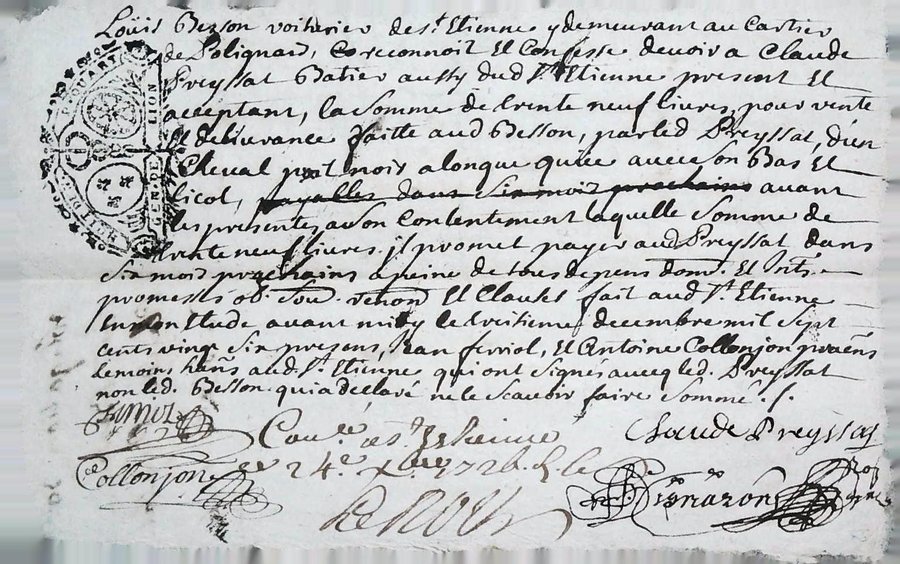 Loüis Besson voiturier de st Etienne y demeurant au Cartier
de Polignard, Co reconnoit Et Confesse devoir a Claude
Preyssat Batier aussy dud st Etienne present Et
acceptant, la Somme de trente neuf livres, pour vente
Et delivrance faitte aud Besson, par led Preyssat, d'un
Cheval poil noir a longue quüee avec son Bas Et
licol, payalles dans six mois prochains avant
les presentes a son Contentement laquelle Somme de
trente neuf livres, jl promet payer aud Preyssat, dans
Six mois prochains a peine de tous depens dom. Et Jnts.
promesses ob. Sou. renon. Et Clauses fait aud st Etienne
En mon Etude avant midy le decembre mil Sept
cents vingt Six presens, Jean ferriol, Et Antoine Collonjon
temoins aud st Etienne qui ont signés avec led. Preyssat
non led. Besson qui a declaré ne le Scavoir faire Sommé ./.
Claude Preyssat
Con.lé a st Estienne
Collonjon
le 24e xbre 1726